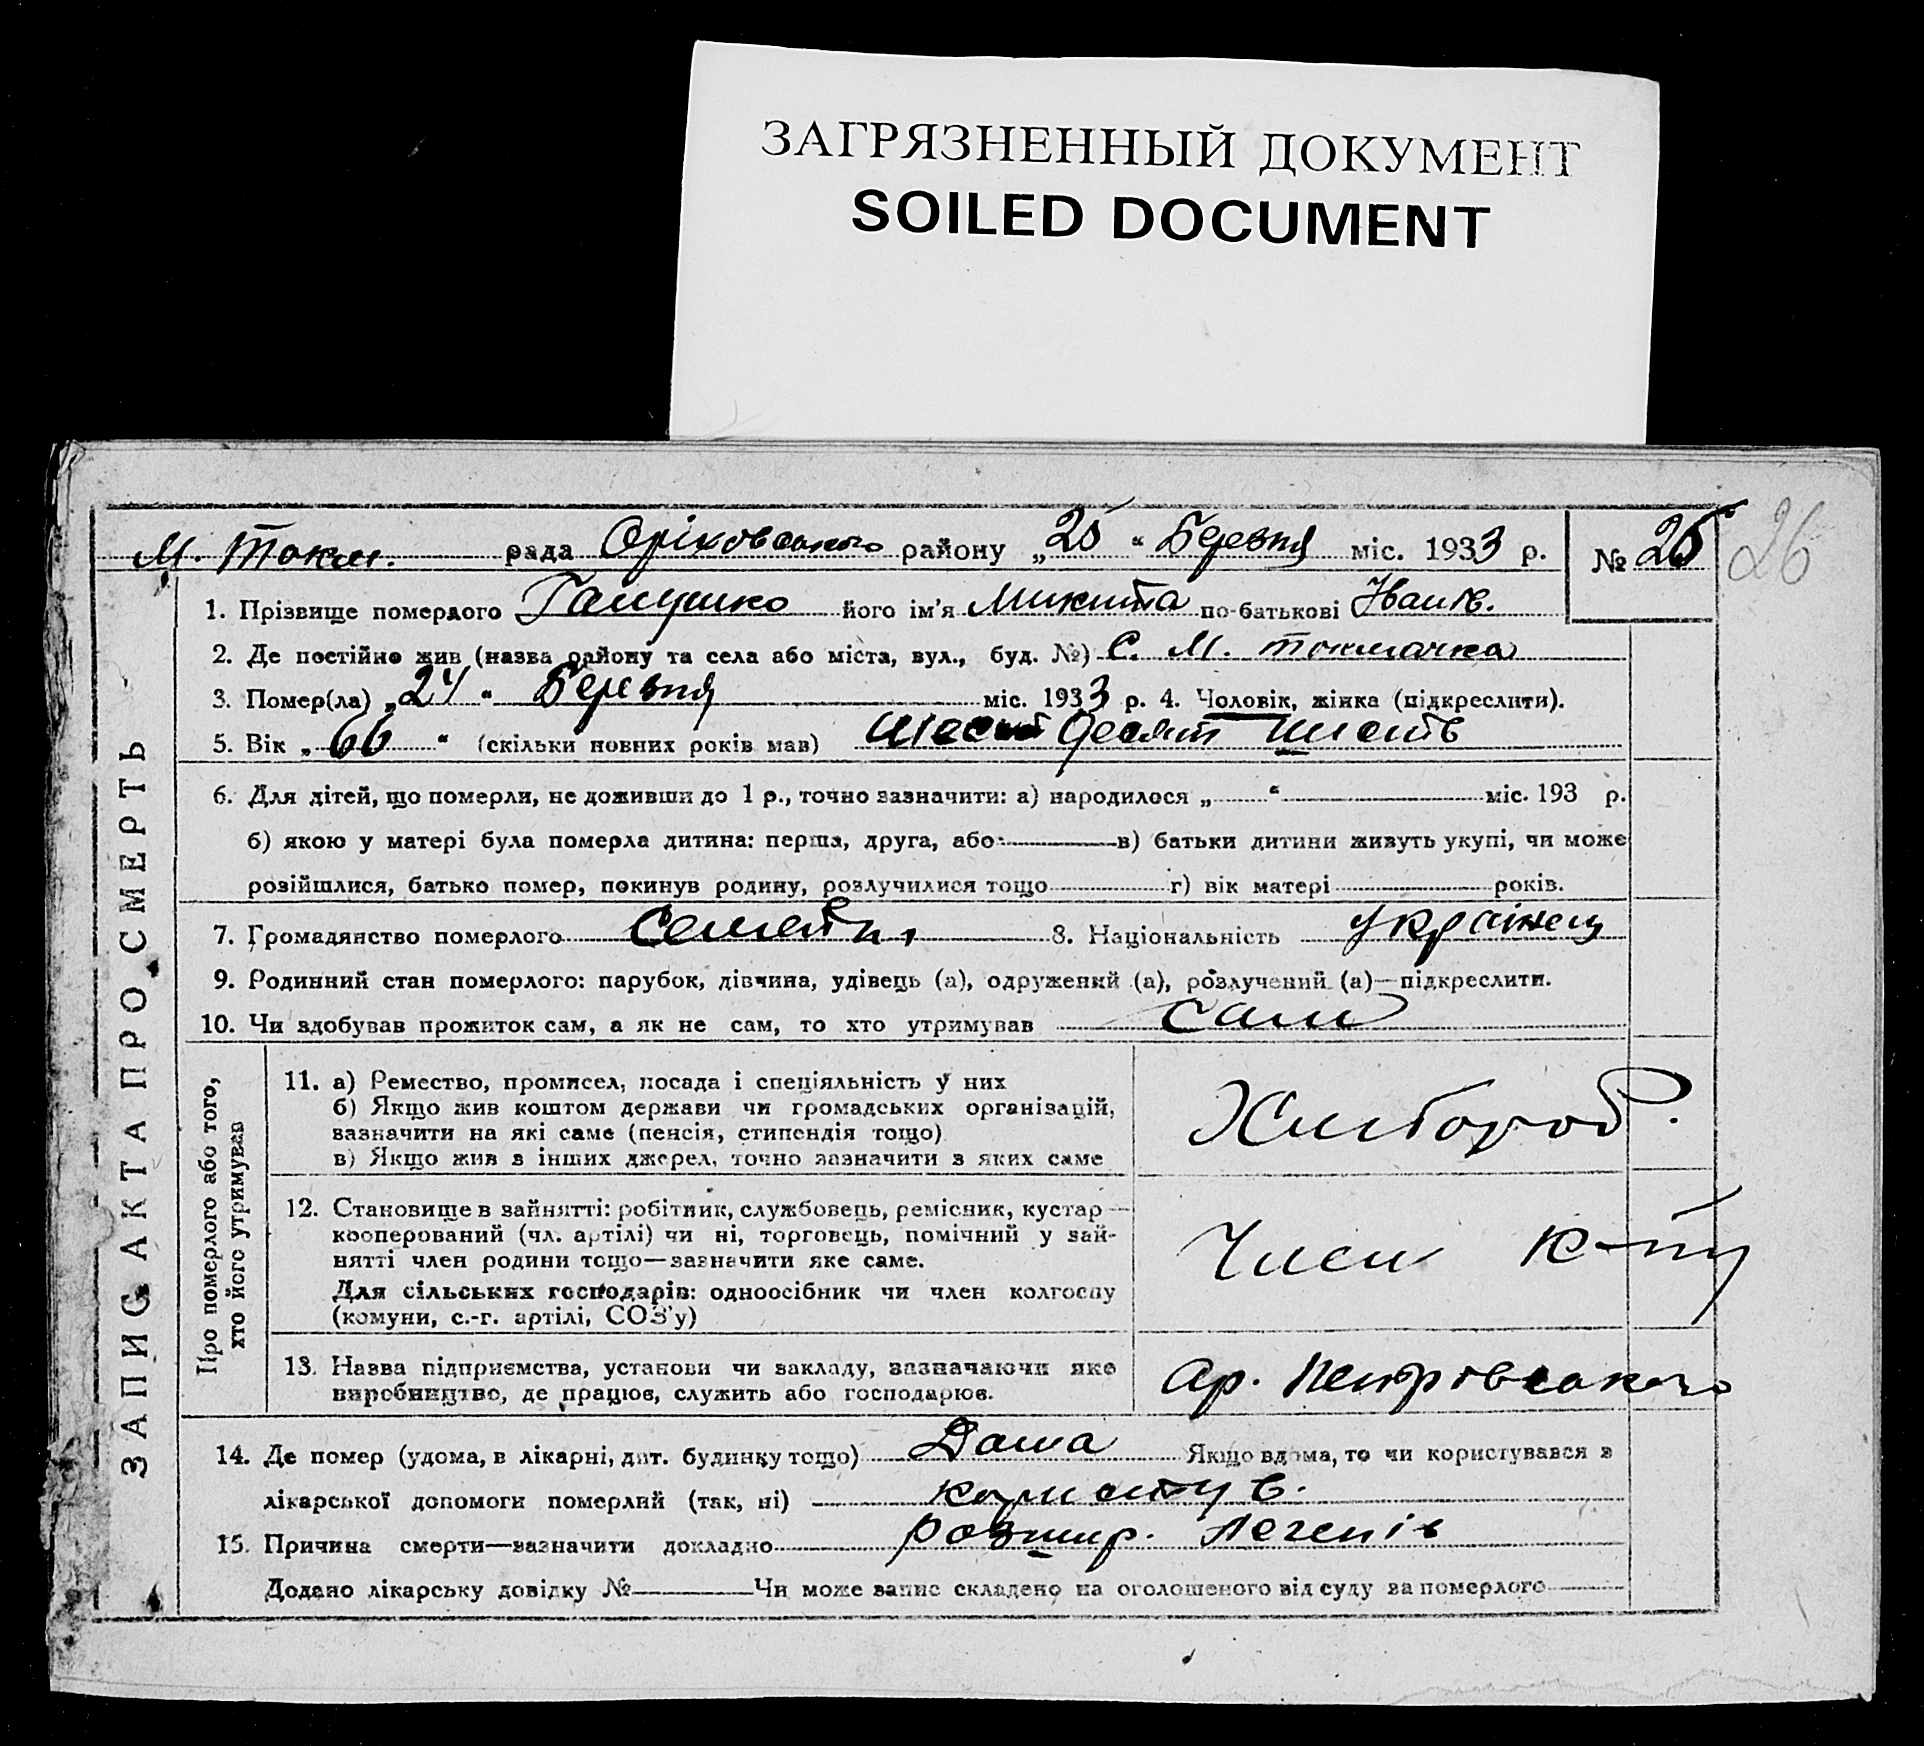 ЗАГРЯЗНЕННЫЙ ДОКУМЕНТ
SOILED DOCUMENT
М. Токм. рада Оріховського району „25“ Березня міс. 1933 р. № 25 26
ЗАПИС АКТА ПРО СМЕРТЬ
1. Прізвище померлого Галушко його ім'я Микита по-батькові Іванів.
2. Де постійно жив (назва району та села або міста, вул., буд. №) С. М. Токмачка
3. Помер(ла) „24“ Березня міс. 1933 р. 4. Чоловік, жінка (підкреслити).
5. Вік „66“ (скільки повних років мав) шестдесят шість
6. Для дітей, що померли, не доживши до 1 р., точно зазначити: а) народилося „ “ міс. 193 р.
б) якою у матері була померла дитина: перша, друга, або в) батьки дитини живуть укупі, чи може
розійшлися, батько помер, покинув родину, розлучилися тощо г) вік матері років.
7. Громадянство померлого 8. Національність Українец
9. Родинний стан померлого: парубок, дівчина, удівець (а), одружений (а), розлучений (а)—підкреслити.
10. Чи здобував прожиток сам, а як не сам, то хто утримував сам
Про померлого або того,
хто його утримував
11. а) Ремество, промисел, посада і спеціяльність у них
б) Якщо жив коштом держави чи громадських організацій,
зазначити на які саме (пенсія, стипендія тощо)
в) Якщо жив з інших джерел, точно зазначити з яких саме
Хлібороб.
12. Становище в зайнятті: робітник, службовець, ремісник, кустар—
кооперований (чл. артілі) чи ні, торговець, помічний у зай-
нятті член родини тощо—зазначити яке саме.
Для сільських господарів: одноосібник чи член колгоспу
(комуни, с.-г. артілі, СОЗ'у)
Член к-пу
13. Назва підприємства, установи чи закладу, зазначаючи яке
виробництво, де працює, служить або господарює.
Ар. Петровського
14. Де помер (удома, в лікарні, дит. будинку тощо) Дома Якщо вдома, то чи користувався з
лікарської допомоги померлий (так, ні)
15. Причина смерти—зазначити докладно розшир. легенів
Додано лікарську довідку № Чи може запис складено на оголошеного від суду за померлого